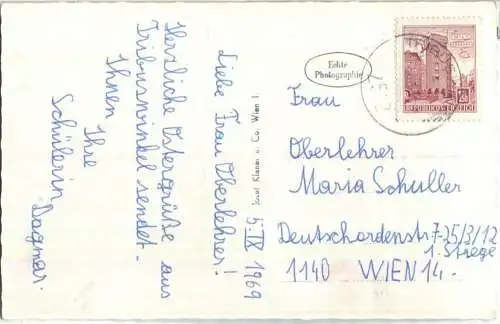 5.IV 1969
Liebe Frau Oberlehrer!
Herzliche Ostergrüße aus
Tribuswinkel sendet
Ihnen
Ihre
Schülerin
Dagmar.
Echte
Photographie
Wien I
REPUBLIK ÖSTERREICH
Frau
Oberlehrer
Maria Schuller
Deutschordenstr 7-25/3/12
1. Stiege
1140 WIEN 14.